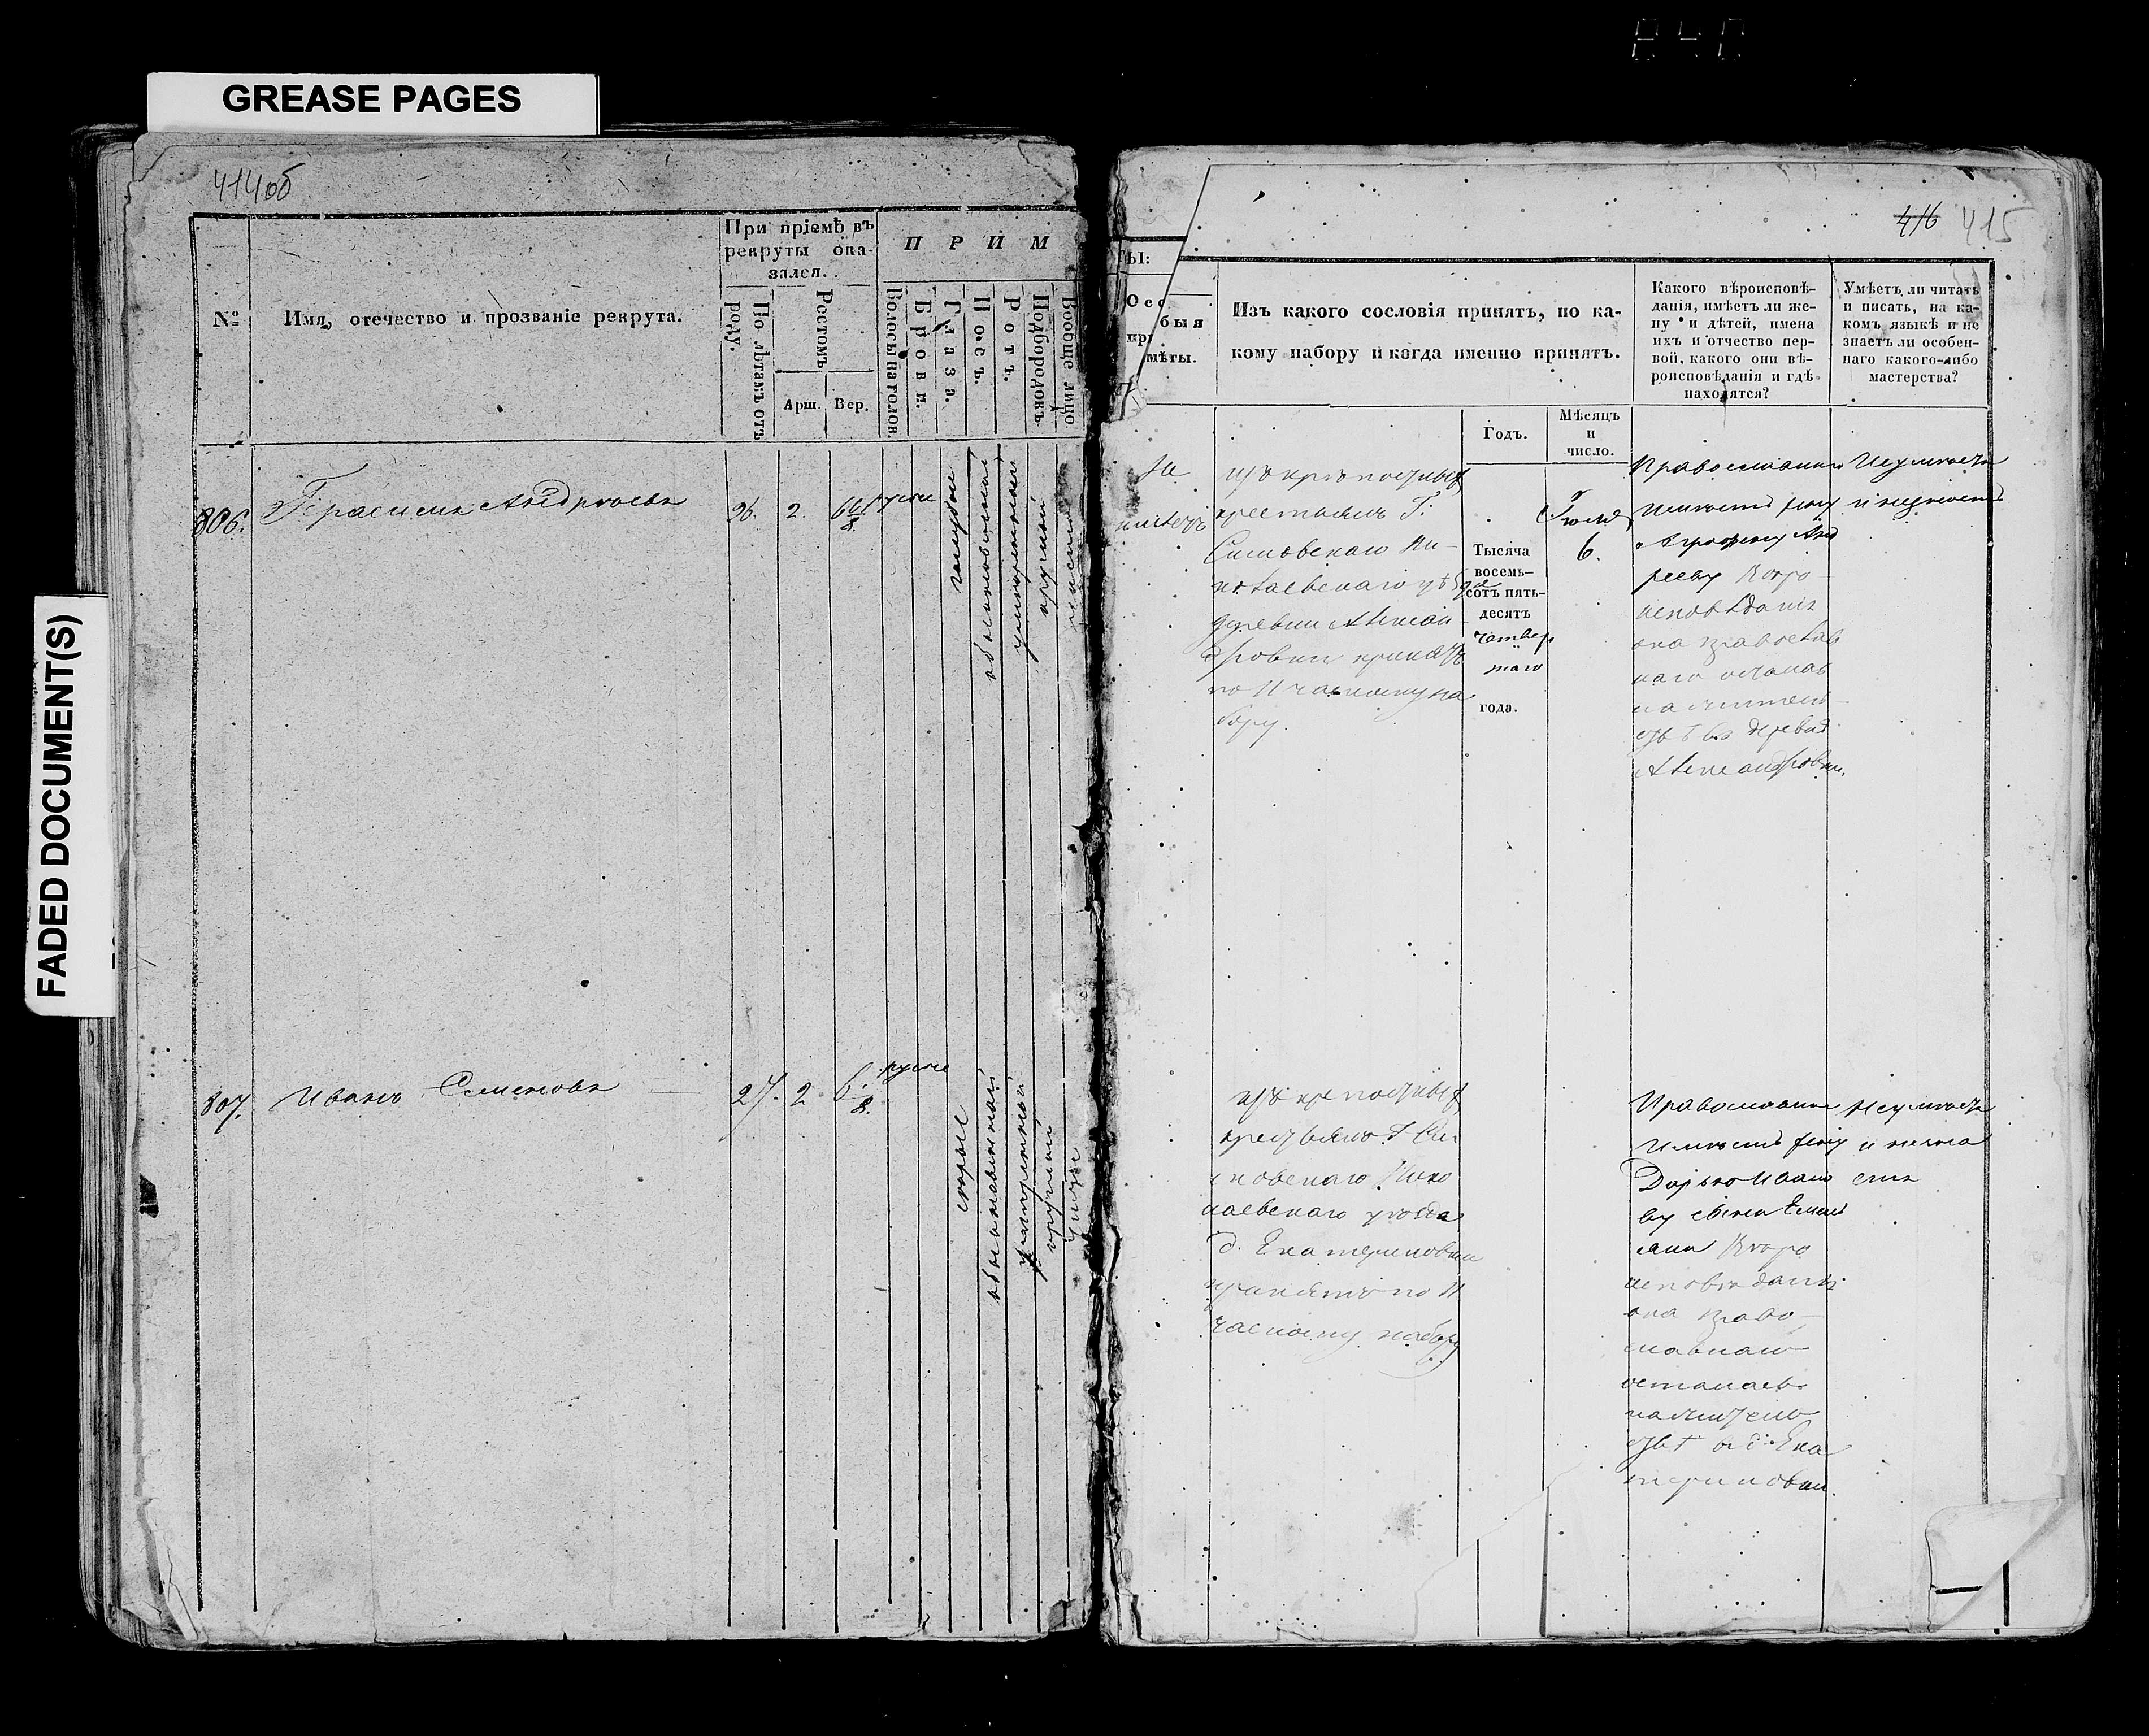 840
GREASE PAGES
FADED DOCUMENT(S)
414об
№
Имя, отечество и прозваніе рекрута.
При пріемѣ въ
рекруты ока-
зался.
По лѣтамъ отъ
роду.
Ростомъ
Арш.
Вер.
П Р И М
Волосы на голов.
Брови.
Глаза.
Носъ.
Ротъ.
Подбородокъ
Вообще лицо
806.
Герасимъ Андреевъ
26.
2.
русые
голубые
обыкновенный
умѣренный
круглый
чистое
807.
Иванъ Семеновъ
27.
2.
6/8.
русые
сѣрые
обыкновенный
умѣренный
круглый
чистое
416 415
ТЫ:
Осо
быя
при
мѣты.
Изъ какого сословія принятъ, по ка-
кому набору и когда именно принятъ.
Годъ.
Мѣсяцъ
и
число.
Какого вѣроисповѣ-
данія, имѣетъ ли же-
ну и дѣтей, имена
ихъ и отчество пер-
вой, какого они вѣ-
роисповѣданія и гдѣ
находятся?
Умѣетъ ли читать
и писать, на ка-
комъ языкѣ и не
знаетъ ли особен-
наго какого-либо
мастерства?
На
изъ крѣпостныхъ
крестьянъ Г.
Ни-
колаевскаго уѣзда
деревни Алексан
дровки принятъ
по 11 частному на
бору.
Тысяча
восемь-
сотъ пять-
десятъ
четвер
таго
года.
Іюля
6.
Православнаго
имѣетъ жену
Анд
рееву Вѣро
исповѣданія
она православ
наго
на житель
ствѣ въ деревнѣ
Александровки.
Неумѣетъ
и незнаетъ
изъ крѣпостныхъ
крестьянъ Г.
Нико
лаевскаго уѣзда
д. Екатериновки
принятъ по 11
частному набору
Православнаго
имѣетъ жену
Дарью Ивано
ву сына
Вѣро
исповѣданія
она право
славнаго
на житель
ствѣ въ д. Ека
териновки.
Неумѣетъ
и незна
етъ